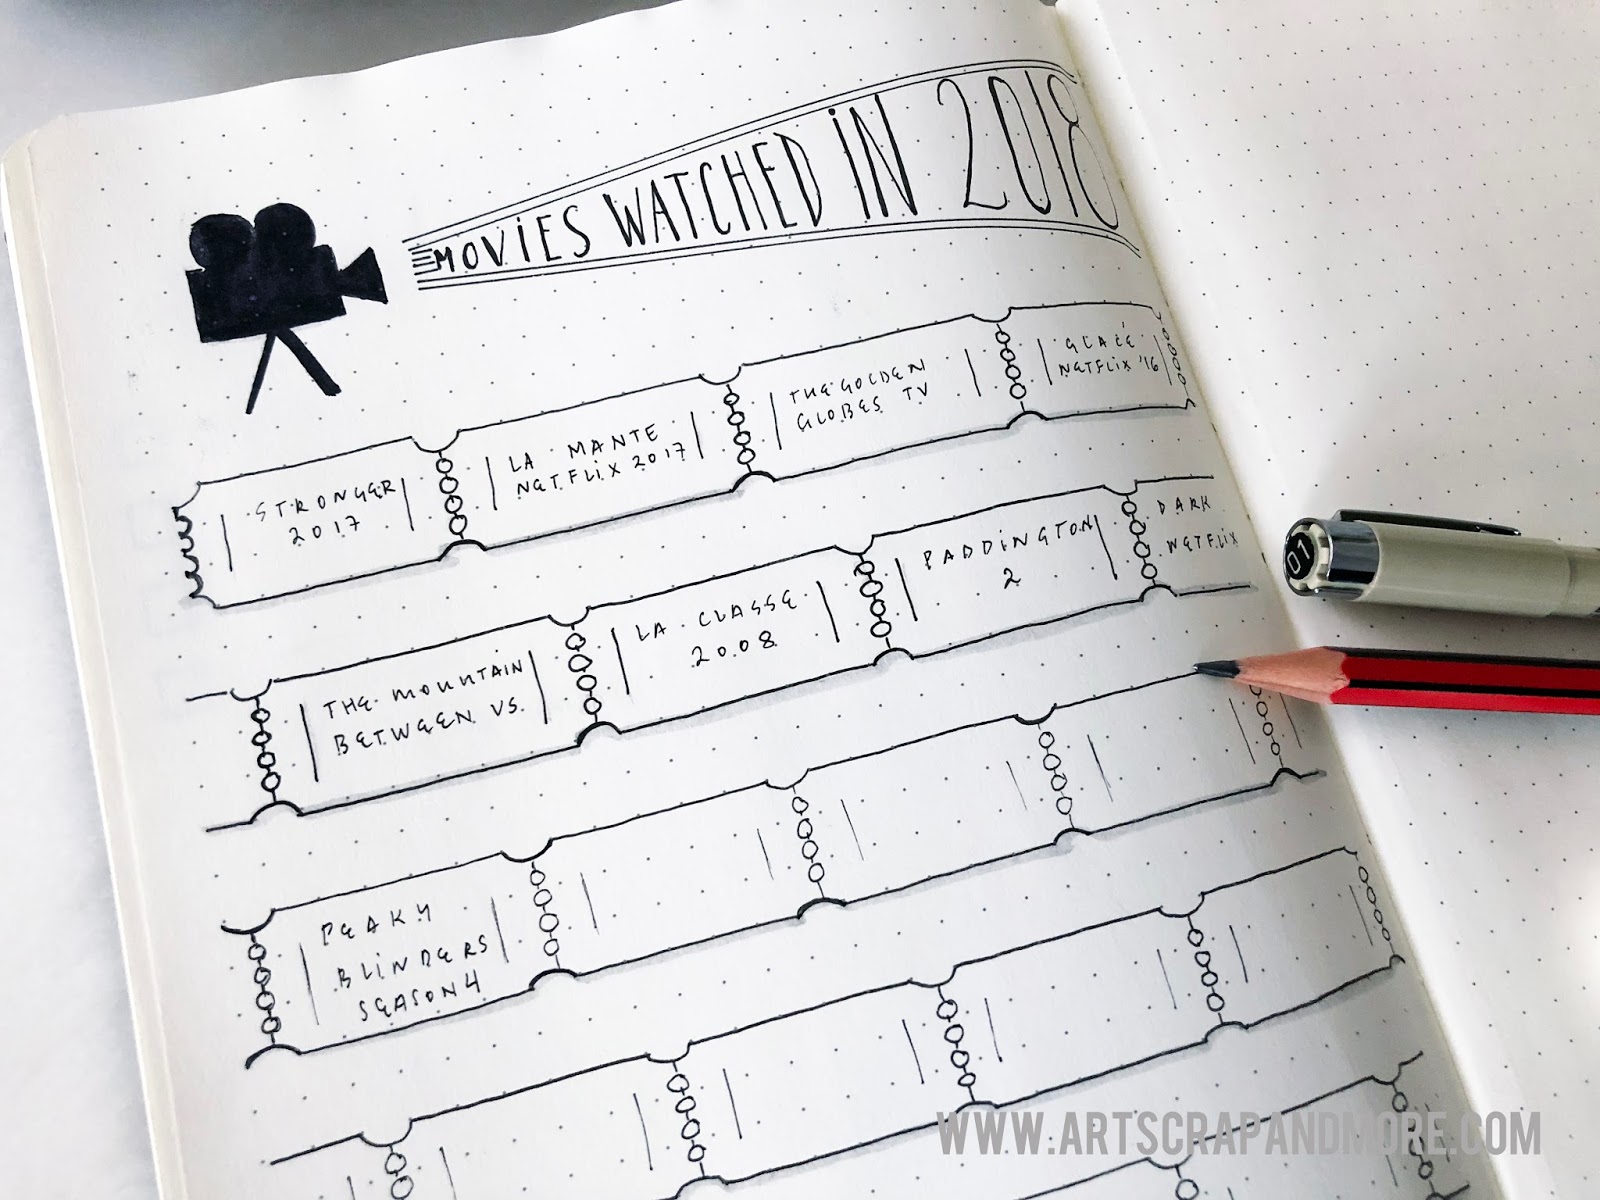 MOVIES WATCHED IN 2018
STRONGER
2017
LA MANTE
NETFLIX 2017
THE GOLDEN
GLOBES TV
GLACÉ
NETFLIX '16
THE MOUNTAIN
BETWEEN US.
LA CLASSE
2008
PADDINGTON
2
DARK
NETFLIX
PEAKY
BLINDERS
SEASON 4
01
WWW.ARTSCRAPANDMORE.COM